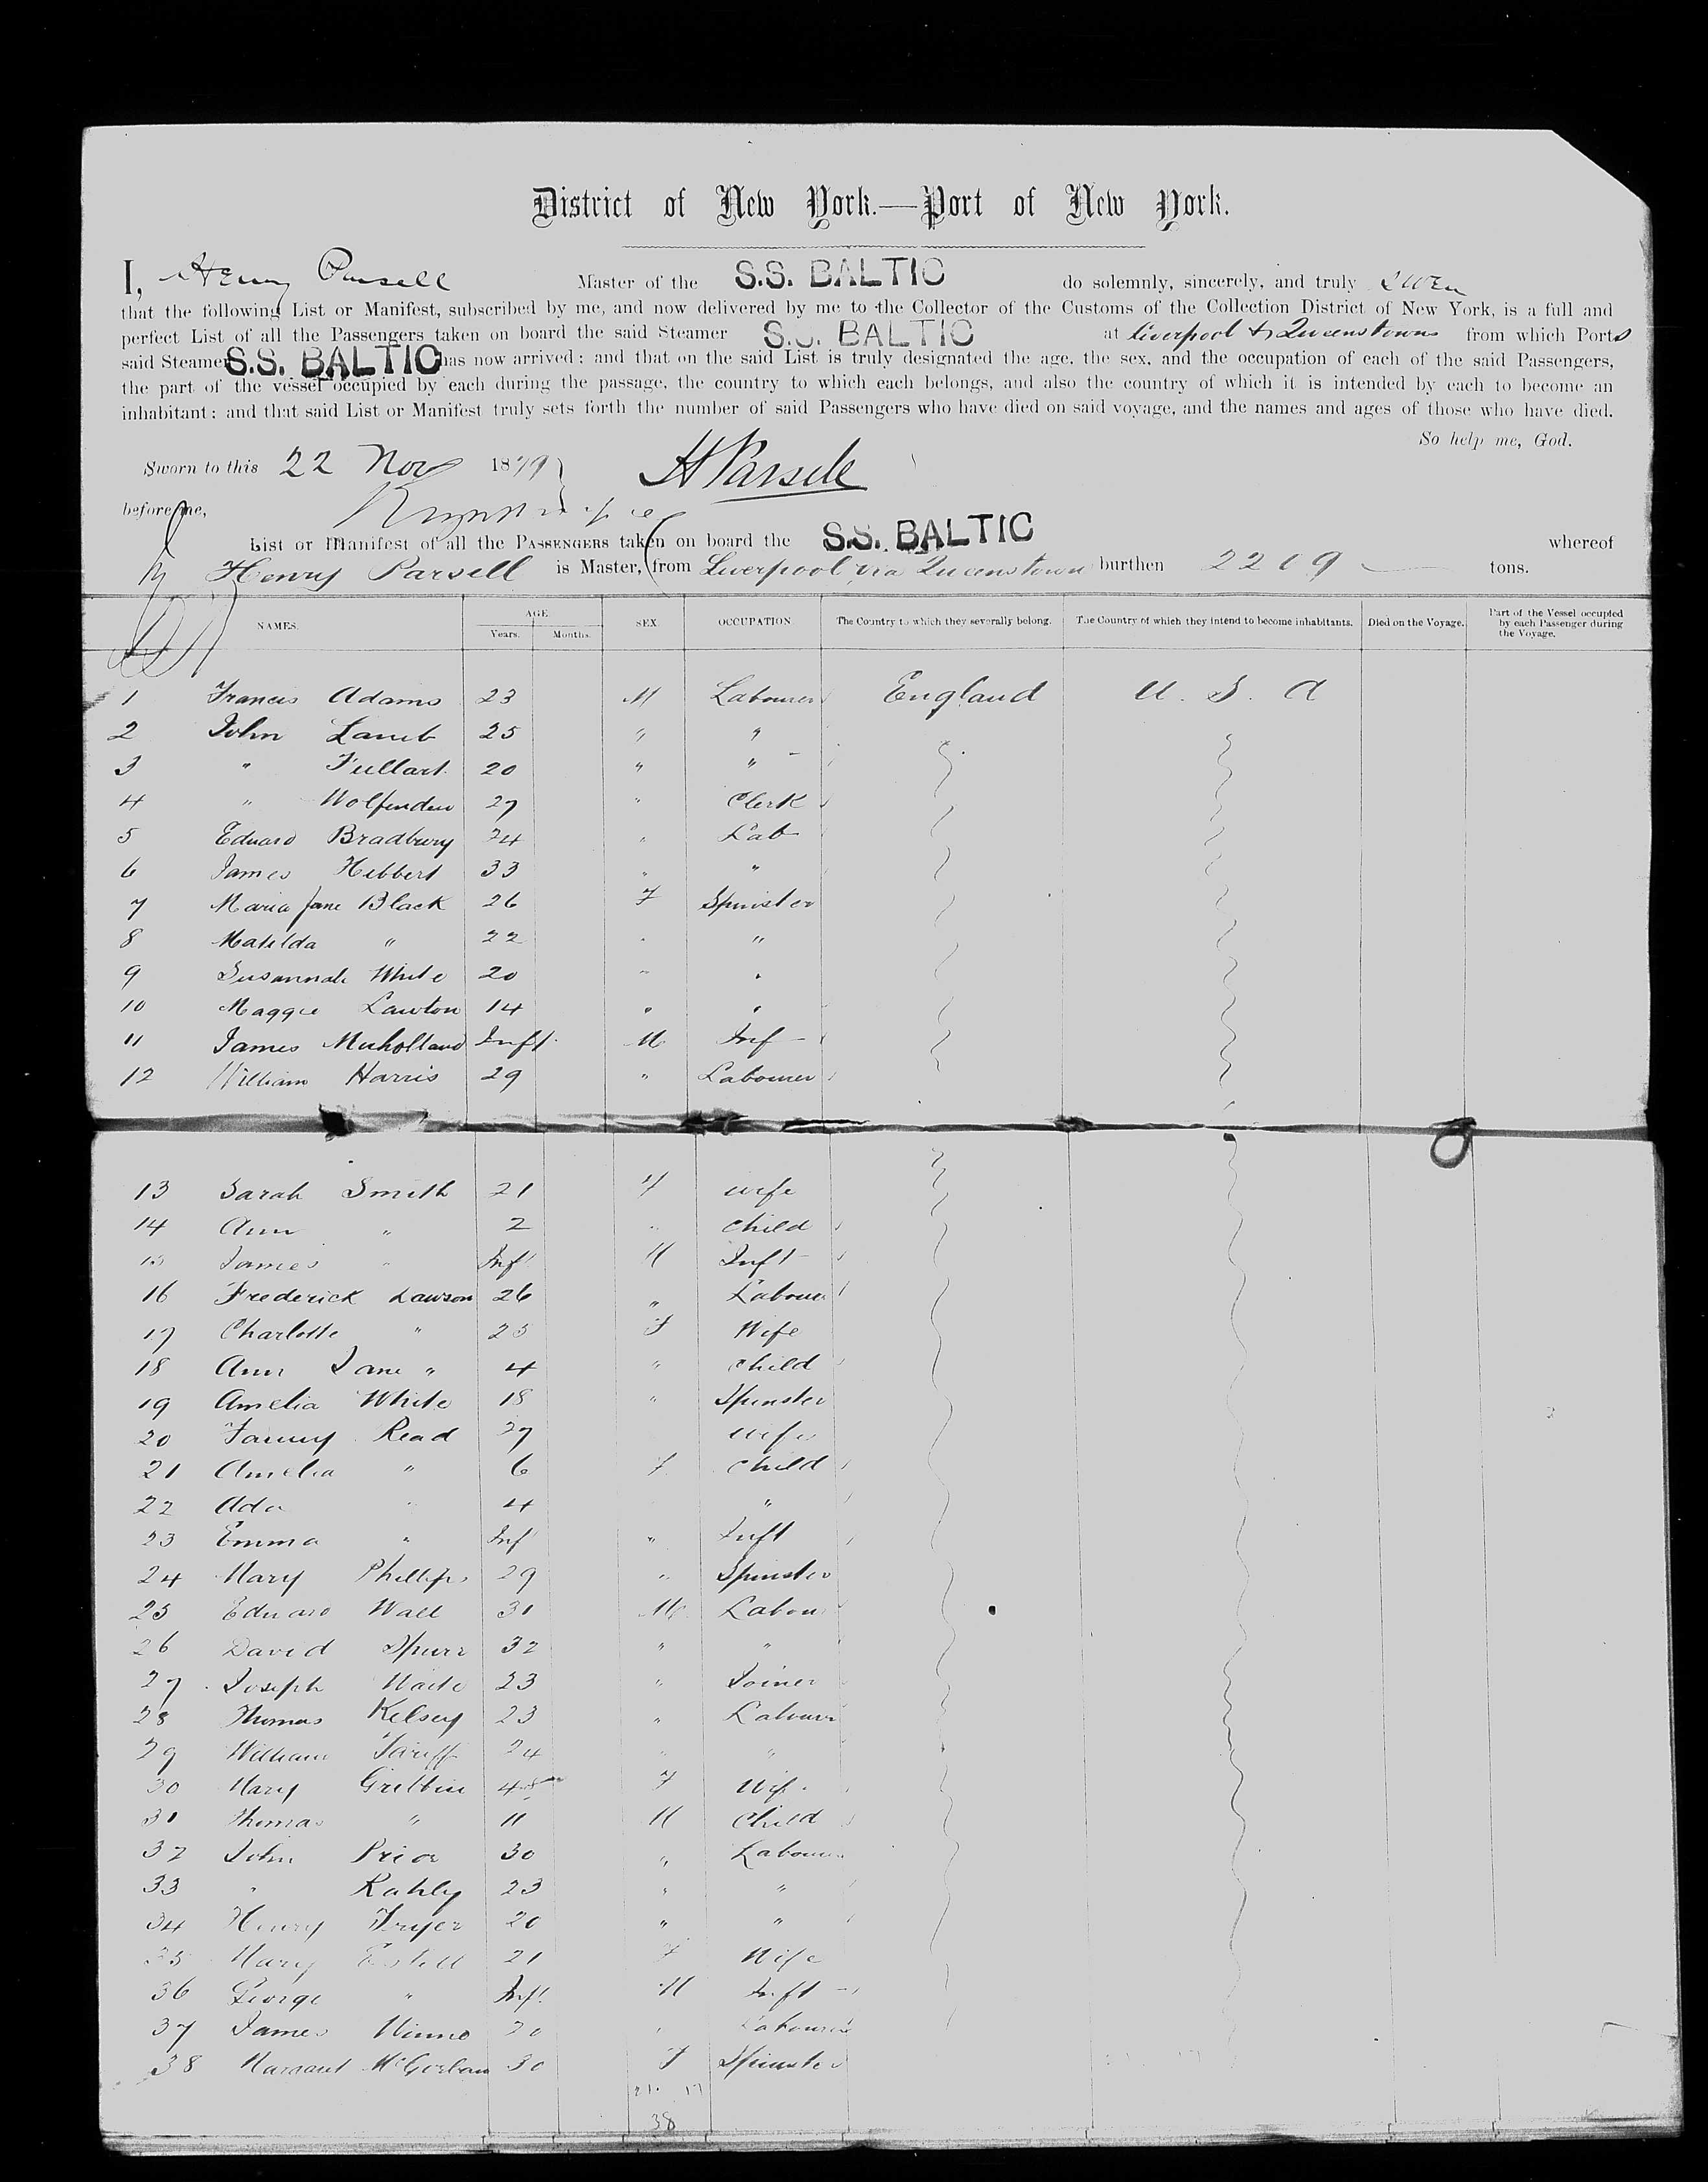 District of New York.—Port of New York.
I, Henry Parsell Master of the S.S. BALTIC do solemnly, sincerely, and truly swear
that the following List or Manifest, subscribed by me, and now delivered by me to the Collector of the Customs of the Collection District of New York, is a full and
perfect List of all the Passengers taken on board the said Steamer S.S. BALTIC at Liverpool & Queenstown from which Ports
said Steamer S.S. BALTIC has now arrived: and that on the said List is truly designated the age, the sex, and the occupation of each of the said Passengers,
the part of the vessel occupied by each during the passage, the country to which each belongs, and also the country of which it is intended by each to become an
inhabitant: and that said List or Manifest truly sets forth the number of said Passengers who have died on said voyage, and the names and ages of those who have died.
So help me, God.
Sworn to this 22 Nov 1879 H Parsell
before me,
List or Manifest of all the PASSENGERS taken on board the S.S. BALTIC whereof
Henry Parsell is Master, from Liverpool via Queenstown burthen 2209 tons.
NAMES. AGE Years. Months. SEX. OCCUPATION. The Country to which they severally belong. The Country of which they intend to become inhabitants. Died on the Voyage. Part of the Vessel occupied by each Passenger during the Voyage.
1 Francis Adams 23 M Labourer England U. S. A
2 John Lamb 25 " "
3 " Fullart 20 " "
4 " Wolfenden 27 " Clerk
5 Edward Bradbury 24 " Lab
6 James Hibbert 33 " "
7 Maria Jane Black 26 F Spinster
8 Matilda " 22 " "
9 Susannah White 20 " "
10 Maggie Lawton 14 " "
11 James Mulholland Inft M Inf
12 William Harris 29 " Labourer
13 Sarah Smith 21 F wife
14 Ann " 2 " child
15 James " Inft M Inft
16 Frederick Lawson 26 " Labourer
17 Charlotte " 25 F Wife
18 Ann Jane " 4 " child
19 Amelia White 18 " Spinster
20 Fanny Read 27 wife
21 Amelia " 6 F child
22 Ada " 4 "
23 Emma " Inf " Inft
24 Mary Phillips 29 " Spinster
25 Edward Wall 31 M Labour
26 David Spurr 32 " "
27 Joseph Waite 23 " Joiner
28 Thomas Kelsey 23 " Labourer
29 William 24 " "
30 Mary Gribbin 48 F Wife
31 Thomas " 11 M Child
32 John Prior 30 " Labourer
33 " Rahly 23 " "
34 Henry Fryer 20 " "
35 Mary 21 F Wife
36 George " Inft M Inft
37 James 20 " Labourer
38 Margaret 30 F Spinster
21 17
38